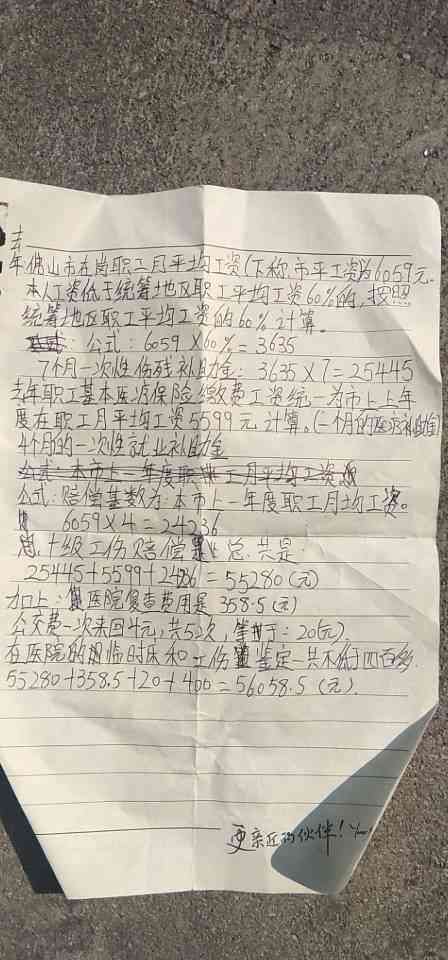 去
年佛山市在岗职工月平均工资(下称,市平工资)为6059元.
本人工资低于统筹地区职工平均工资60%的,按照
统筹地区职工平均工资的60%计算。
公式:6059×60%=3635
7个月一次性伤残补助金:3635×7=25445
去年职工基本医疗保险缴费工资统一为市上上年
度在职工月平均工资5599元计算。(一个月的医疗补助金)
4个月的一次性就业补助金
公式:本市上一年度职 工月平均工资
公式:赔偿基数为:本市上一年度职工月均工资。
6059×4=24236
总:十级工伤赔偿 总共是:
25445+5599+24236=55280(元)
加上:医院复查费用是358.5(元)
公交费一次来回4元,共5次,等于:20(元).
在医院的 临时床和工伤 鉴定一共不低于四百多.
55280+358.5+20+400=56058.5(元).
更亲近的伙伴!